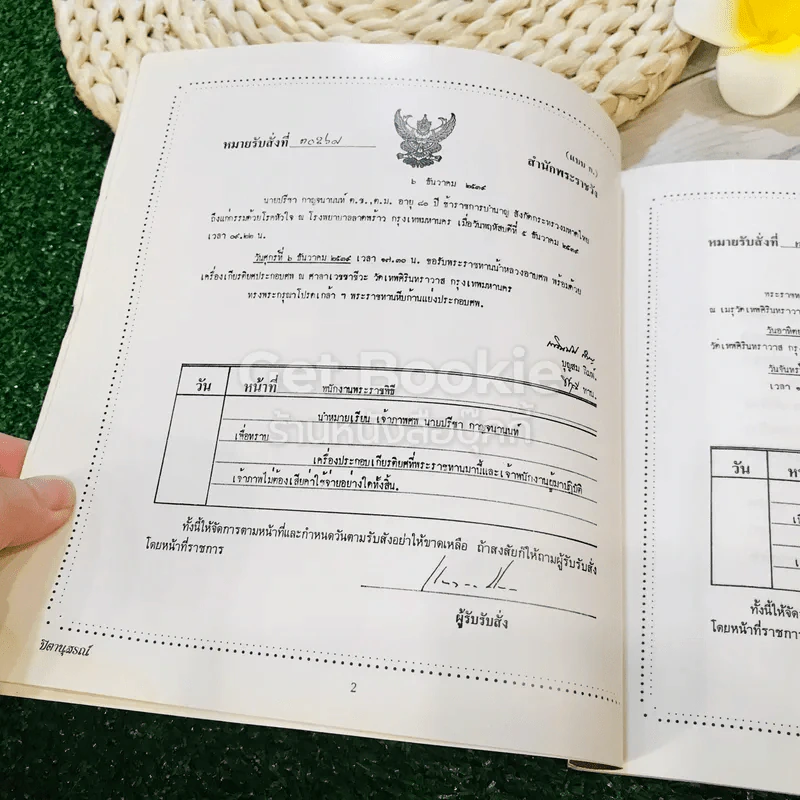 หมายรับสั่งที่ ๓๐๖๒๗
(แบบ ก.)
สำนักพระราชวัง
๖ ธันวาคม ๒๕๓๙
นายปรีชา กาญจนานนท์ ต.ช., ต.ม. อายุ ๘๐ ปี ข้าราชการบำนาญ สังกัดกระทรวงมหาดไทย
ถึงแก่กรรมด้วยโรคหัวใจ ณ โรงพยาบาลลาดพร้าว กรุงเทพมหานคร เมื่อวันพฤหัสบดีที่ ๕ ธันวาคม ๒๕๓๙
เวลา ๐๙.๒๒ น.
วันศุกร์ที่ ๖ ธันวาคม ๒๕๓๙ เวลา ๑๗.๓๐ น. ขอรับพระราชทานน้ำหลวงอาบศพ พร้อมด้วย
เครื่องเกียรติยศประกอบศพ ณ ศาลาเวชชาชีวะ วัดเทพศิรินทราวาส กรุงเทพมหานคร
ทรงพระกรุณาโปรดเกล้า ฯ พระราชทานหีบก้านแย่งประกอบศพ.
วัน หน้าที่ พนักงานพระราชพิธี
นำหมายเรียน เจ้าภาพศพ นายปรีชา กาญจนานนท์
เพื่อทราบ
เครื่องประกอบเกียรติยศที่พระราชทานมานี้และเจ้าพนักงานผู้มาปฏิบัติ
เจ้าภาพไม่ต้องเสียค่าใช้จ่ายอย่างใดทั้งสิ้น.
ทั้งนี้ให้จัดการตามหน้าที่และกำหนดวันตามรับสั่งอย่าให้ขาดเหลือ ถ้าสงสัยก็ให้ถามผู้รับรับสั่ง
โดยหน้าที่ราชการ
ผู้รับรับสั่ง
ปิตานุสรณ์
2
Get Bookie
ร้านหนังสือบุ๊คกี้
หมายรับสั่งที่
ณ เมรุวัดเทพศิรินทราวาส
วันอาทิตย์
วัดเทพศิรินทราวาส
วันจันทร์
เวลา
วัน
ทั้งนี้ให้จัดการ
โดยหน้าที่ราชการ